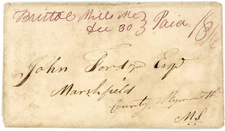 Bristol Mills Me
Dec 30 Paid
John Ford Esqr
Marshfield
County Plymouth
Ms